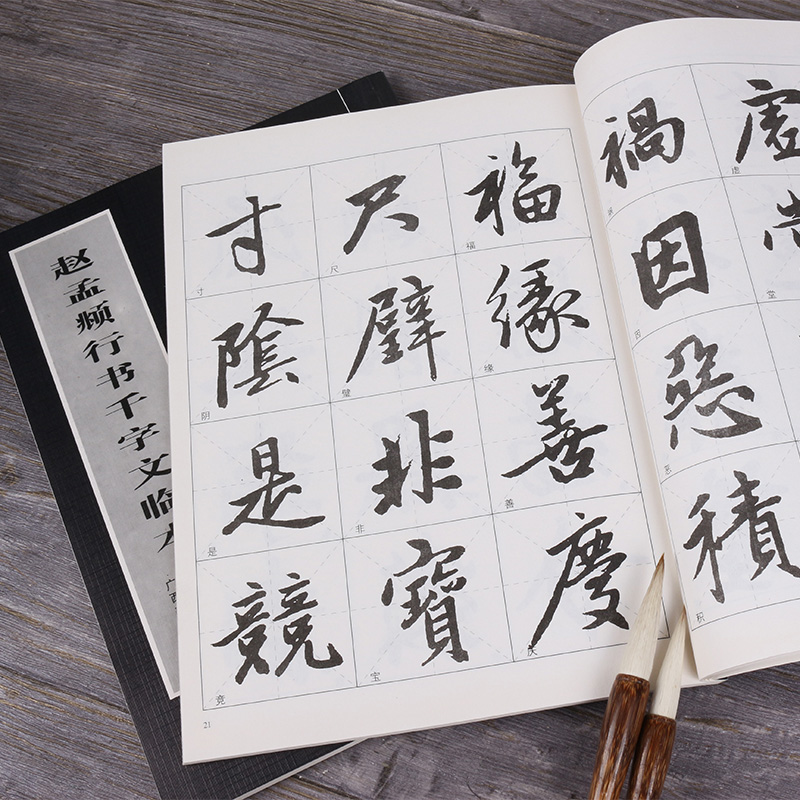 赵孟頫行书千字文临
广西
虛
禍因惡積
福緣善慶
尺璧非寶
寸陰是競
虚
堂
因
恶
积
福
缘
善
庆
尺
璧
非
宝
寸
阴
是
竞
21